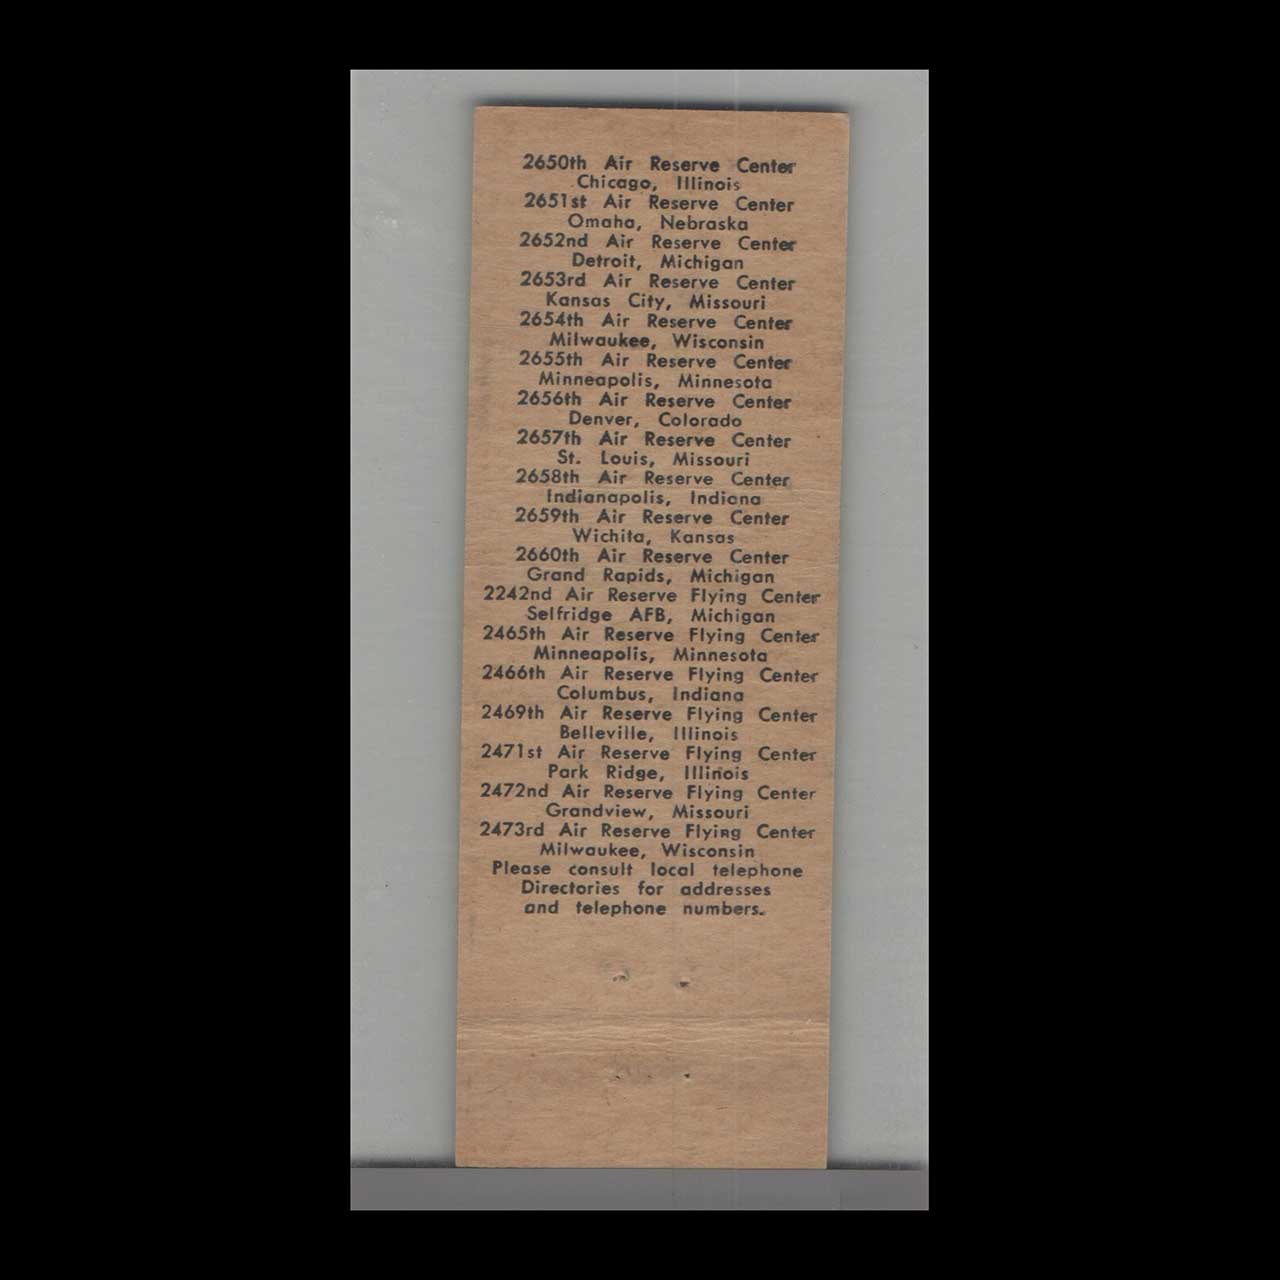 2650th Air Reserve Center
Chicago, Illinois
2651st Air Reserve Center
Omaha, Nebraska
2652nd Air Reserve Center
Detroit, Michigan
2653rd Air Reserve Center
Kansas City, Missouri
2654th Air Reserve Center
Milwaukee, Wisconsin
2655th Air Reserve Center
Minneapolis, Minnesota
2656th Air Reserve Center
Denver, Colorado
2657th Air Reserve Center
St. Louis, Missouri
2658th Air Reserve Center
Indianapolis, Indiana
2659th Air Reserve Center
Wichita, Kansas
2660th Air Reserve Center
Grand Rapids, Michigan
2242nd Air Reserve Flying Center
Selfridge AFB, Michigan
2465th Air Reserve Flying Center
Minneapolis, Minnesota
2466th Air Reserve Flying Center
Columbus, Indiana
2469th Air Reserve Flying Center
Belleville, Illinois
2471st Air Reserve Flying Center
Park Ridge, Illinois
2472nd Air Reserve Flying Center
Grandview, Missouri
2473rd Air Reserve Flying Center
Milwaukee, Wisconsin
Please consult local telephone
Directories for addresses
and telephone numbers.